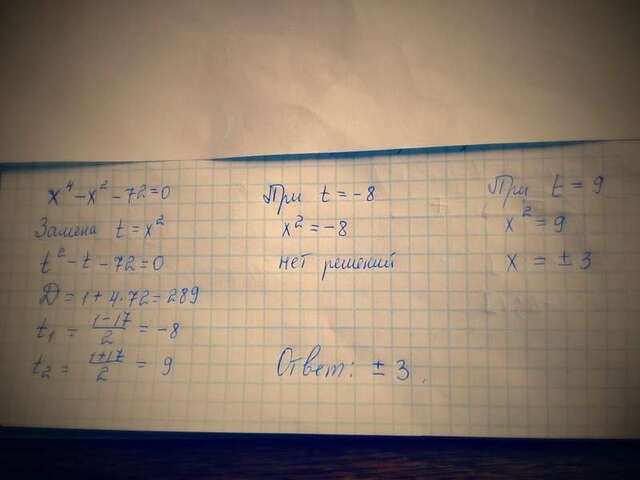 x⁴ - x² - 72 = 0
Замена t = x²
t² - t - 72 = 0
D = 1 + 4·72 = 289
t₁ = (1-17)/2 = -8
t₂ = (1+17)/2 = 9
При t = -8
x² = -8
нет решений
При t = 9
x² = 9
x = ± 3
Ответ: ± 3.